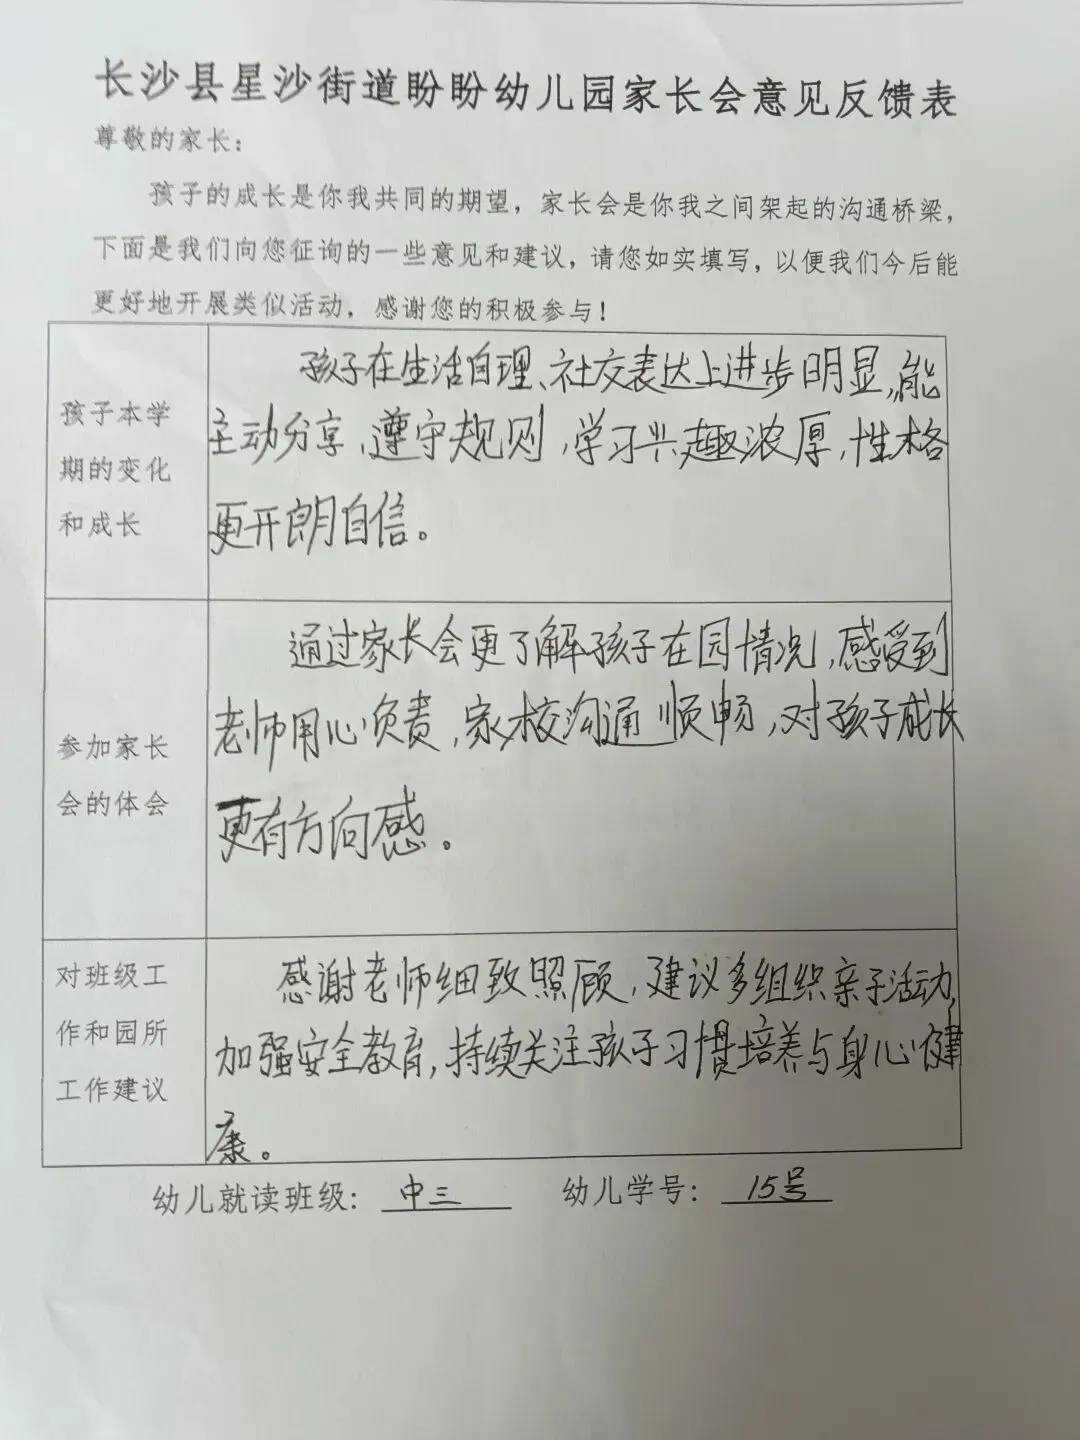 长沙县星沙街道盼盼幼儿园家长会意见反馈表
尊敬的家长：
孩子的成长是你我共同的期望，家长会是你我之间架起的沟通桥梁，
下面是我们向您征询的一些意见和建议，请您如实填写，以便我们今后能
更好地开展类似活动，感谢您的积极参与！
孩子本学
期的变化
和成长
孩子在生活自理、社交表达上进步明显，能
主动分享，遵守规则，学习兴趣浓厚，性格
更开朗自信。
参加家长
会的体会
通过家长会更了解孩子在园情况，感受到
老师用心负责，家校沟通顺畅，对孩子成长
更有方向感。
对班级工
作和园所
工作建议
感谢老师细致照顾，建议多组织亲子活动，
加强安全教育，持续关注孩子习惯培养与身心健
康。
幼儿就读班级：中三 幼儿学号：15号